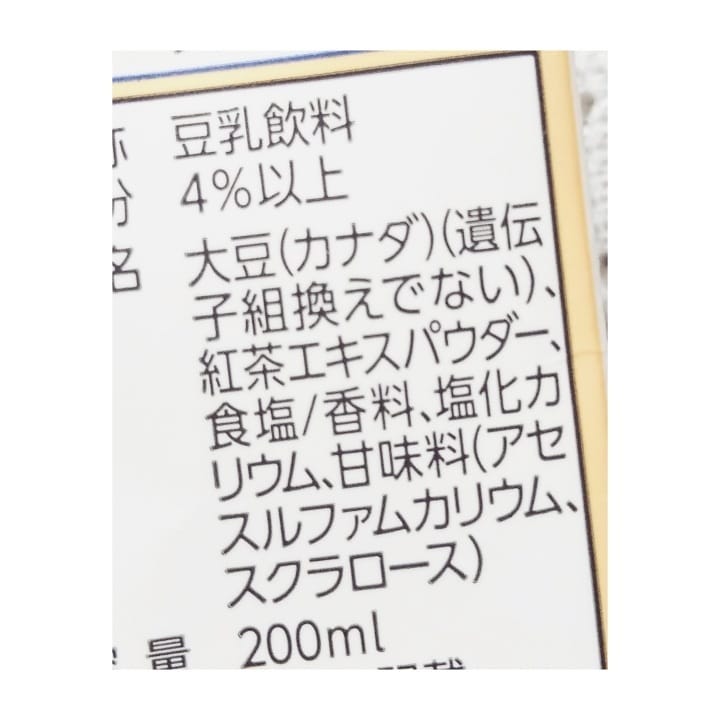 称 豆乳飲料
分 4%以上
名 大豆(カナダ)(遺伝
子組換えでない)、
紅茶エキスパウダー、
食塩/香料、塩化カ
リウム、甘味料(アセ
スルファムカリウム、
スクラロース)
容量 200ml